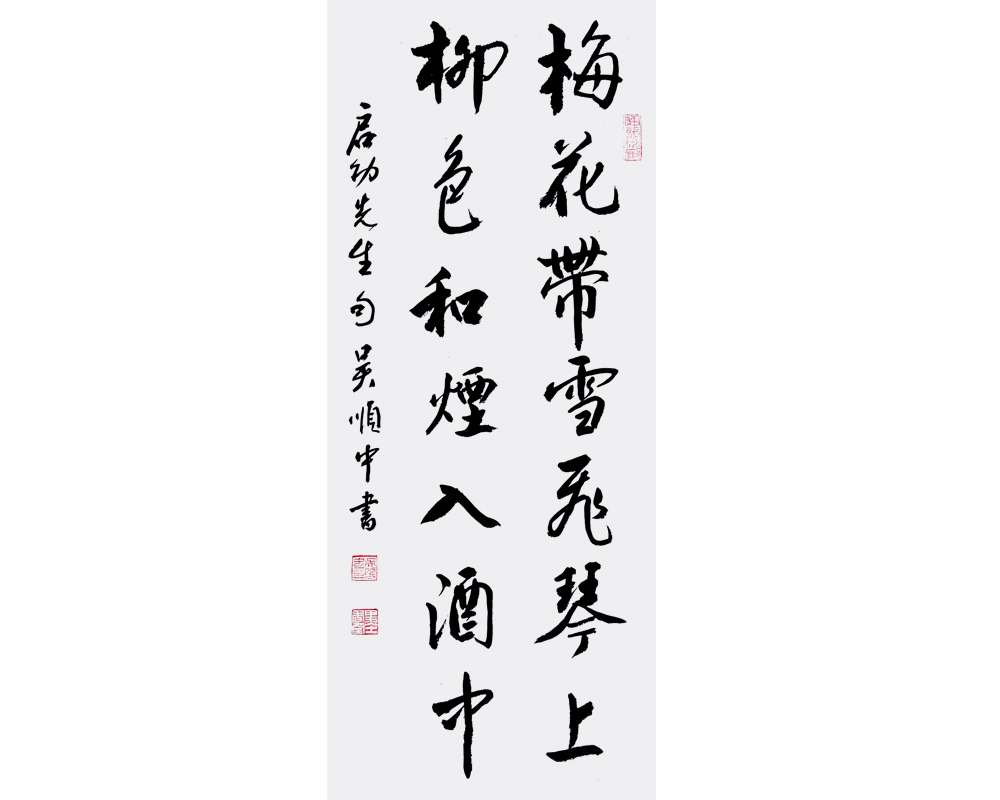 梅花帶雪飛琴上
柳色和煙入酒中
启功先生句吴順中書